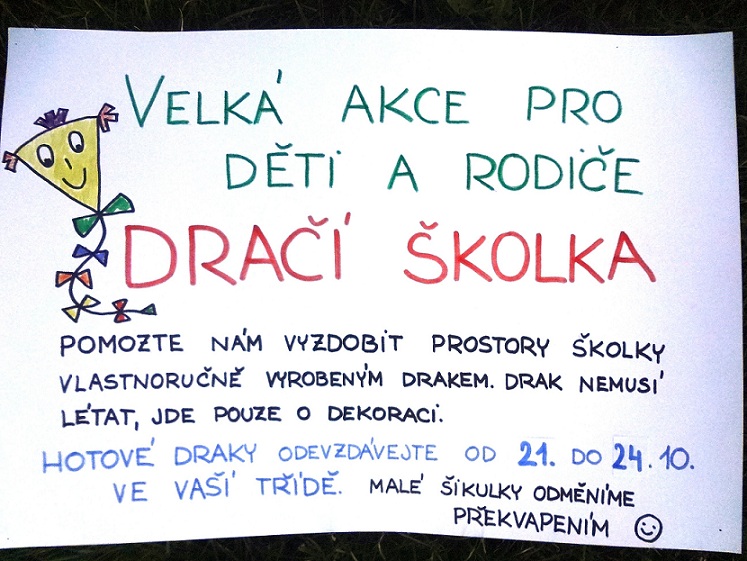 VELKÁ AKCE PRO
DĚTI A RODIČE
DRAČÍ ŠKOLKA
POMOZTE NÁM VYZDOBIT PROSTORY ŠKOLKY
VLASTNORUČNĚ VYROBENÝM DRAKEM. DRAK NEMUSÍ
LÉTAT, JDE POUZE O DEKORACI.
HOTOVÉ DRAKY ODEVZDÁVEJTE OD 21. DO 24.10.
VE VAŠÍ TŘÍDĚ. MALÉ ŠIKULKY ODMĚNÍME
PŘEKVAPENÍM